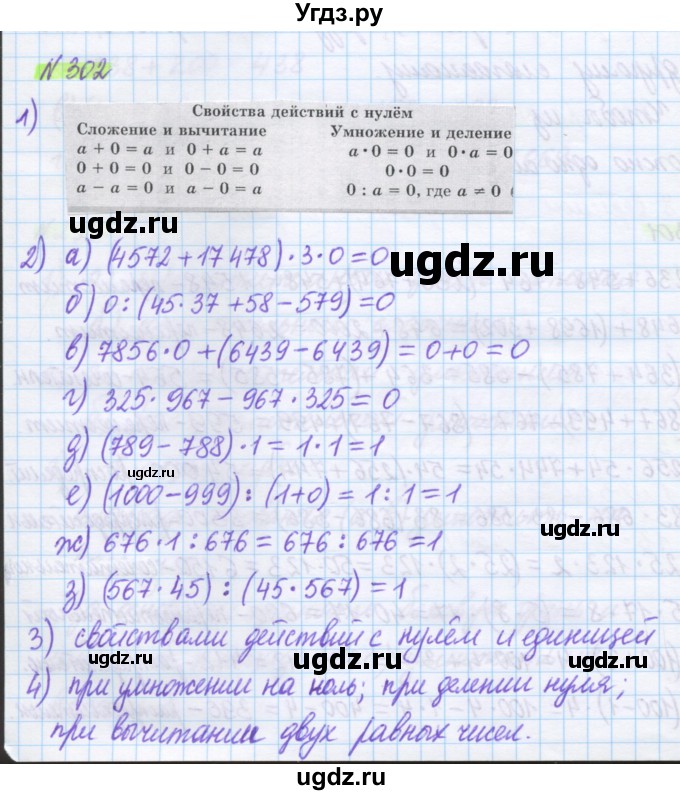 Угдз.ру
N 302
1)
Свойства действий с нулём
Сложение и вычитание
a + 0 = a и 0 + a = a
0 + 0 = 0 и 0 − 0 = 0
a − a = 0 и a − 0 = a
Умножение и деление
a · 0 = 0 и 0 · a = 0
0 · 0 = 0
0 : a = 0, где a ≠ 0
ugdz.ru
2) а) (4572+17478)·3·0=0
ugdz.ru
б) 0:(45·37+58−579)=0
в) 7856·0+(6439−6439)=0+0=0
г) 325·967−967·325=0
д) (789−788)·1=1·1=1
ugdz.ru
е) (1000−999):(1+0)=1:1=1
ugdz.ru
ж) 676·1:676=676:676=1
з) (567·45):(45·567)=1
3) свойствами действий с нулём и единицей
ugdz.ru
ugdz.ru
4) при умножении на ноль; при делении нуля;
при вычитании двух равных чисел.
ugdz.ru
ugdz.ru